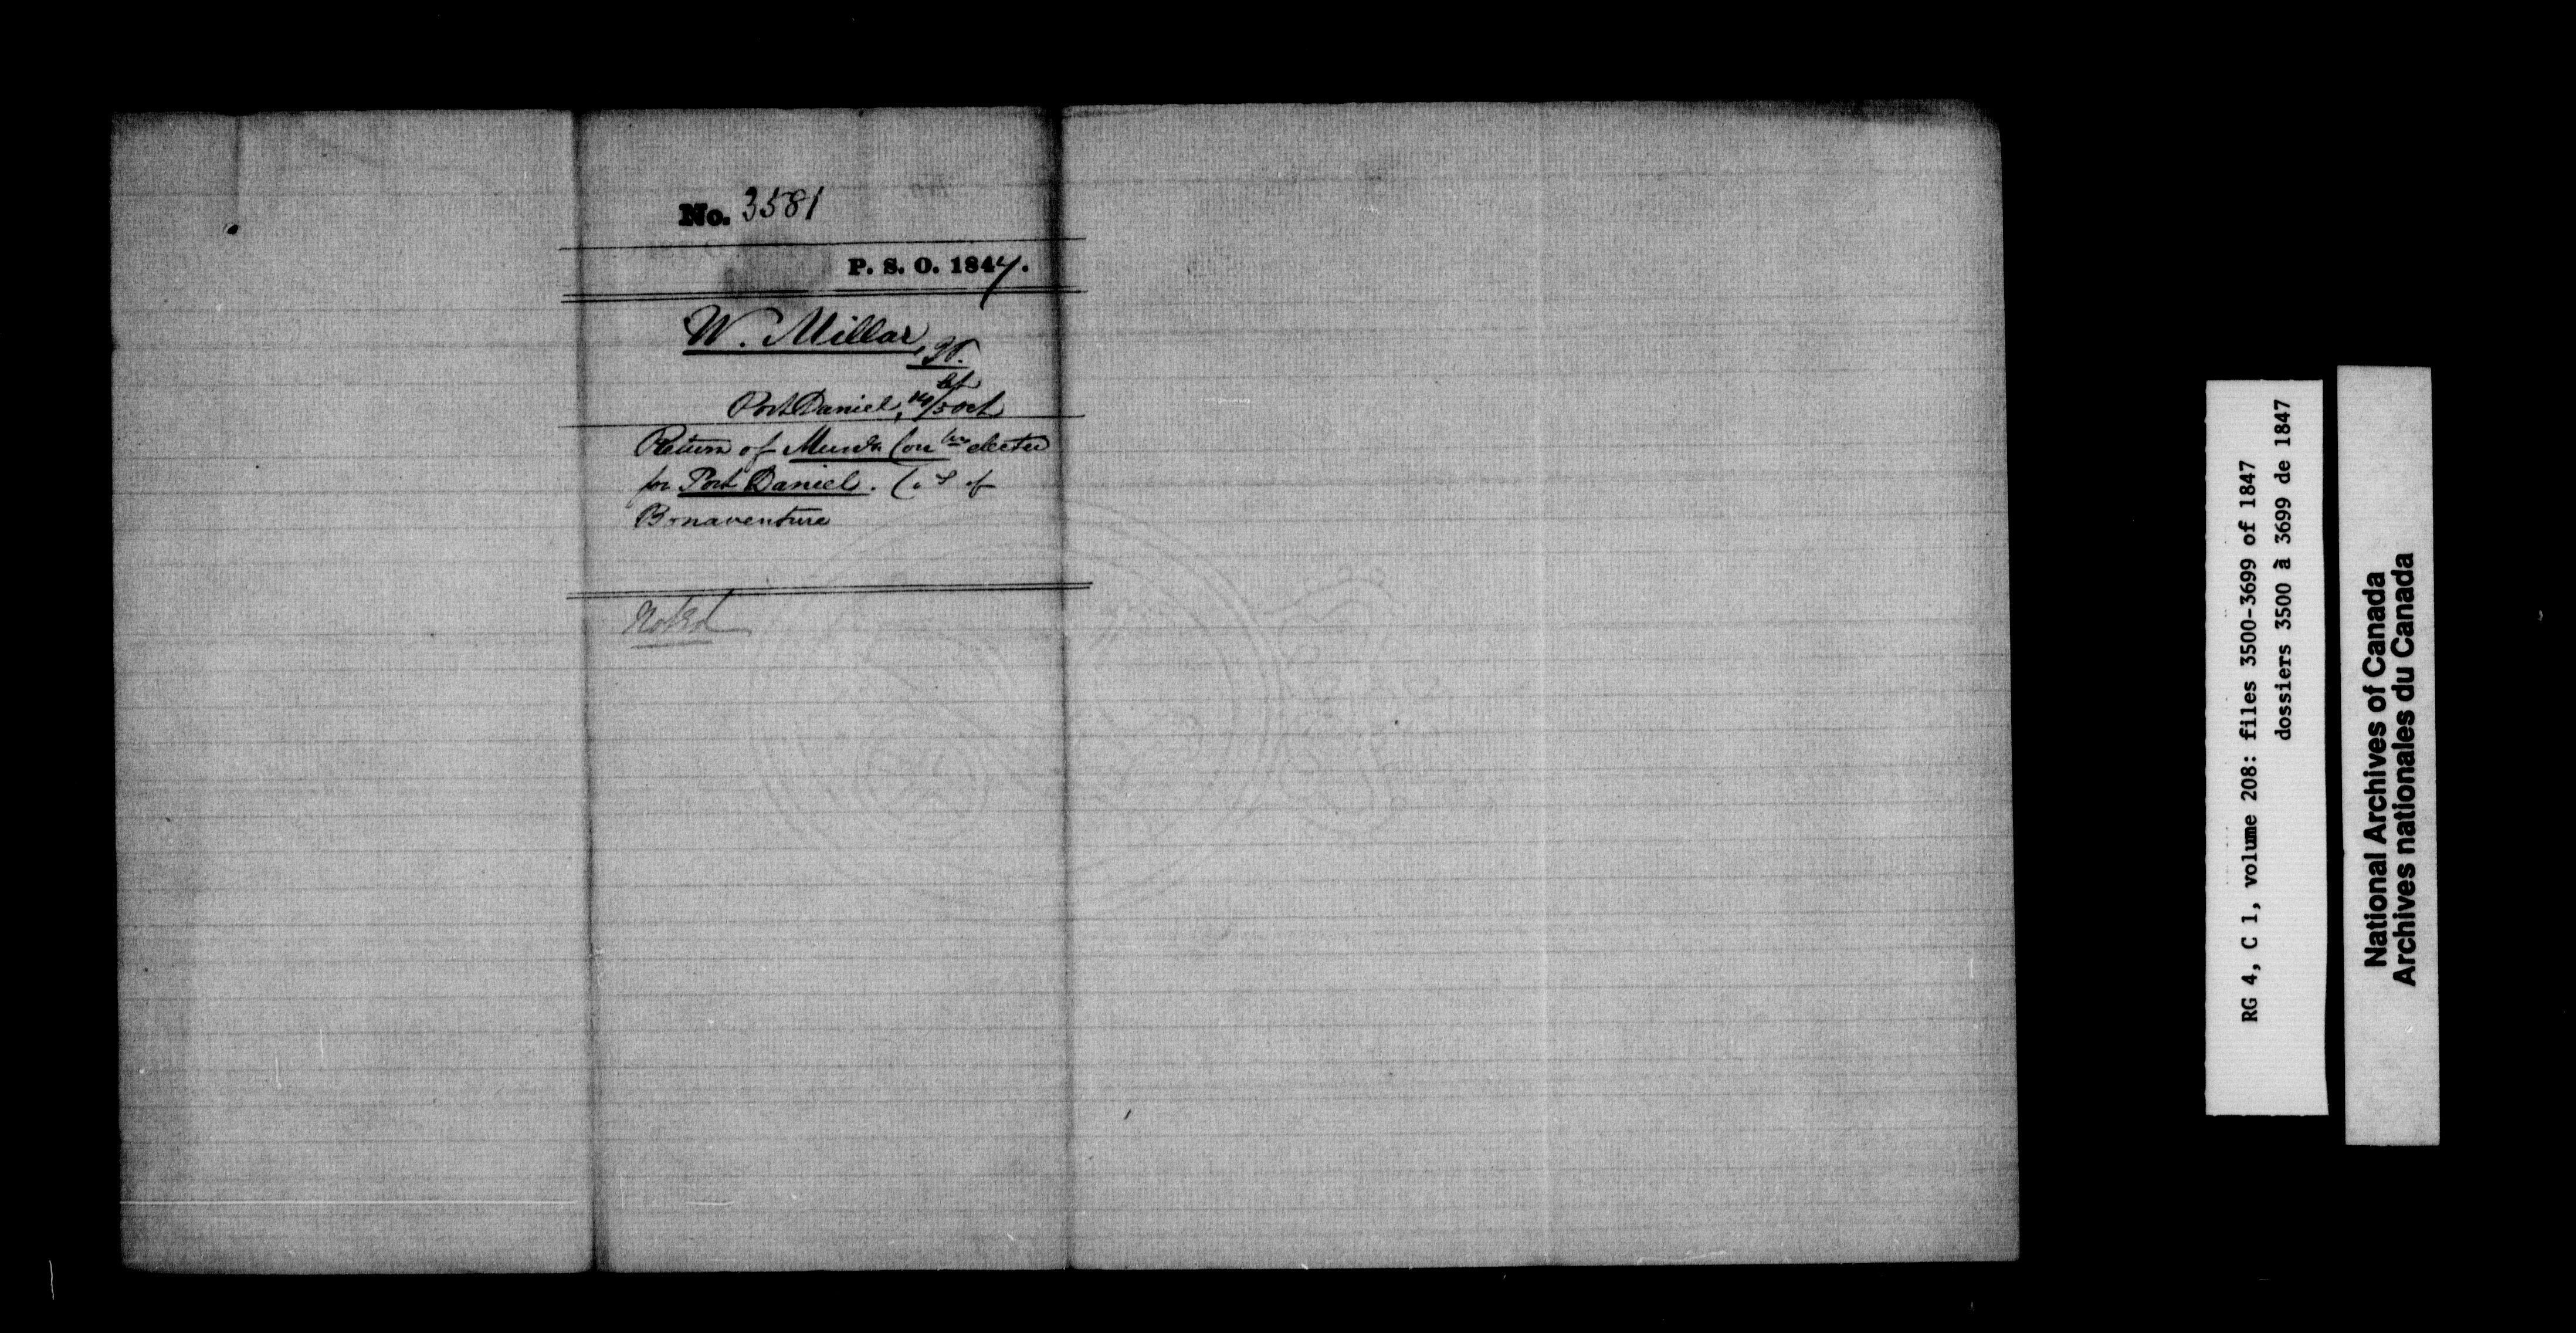 No. 3581
P. S. O. 1847.
W. Millar,
Port Daniel, Oct
Return of Munl. Coun lrs elected
for Port Daniel. Co. of
Bonaventure
Noted
RG 4, C 1, volume 208: files 3500-3699 of 1847
dossiers 3500 à 3699 de 1847
National Archives of Canada
Archives nationales du Canada